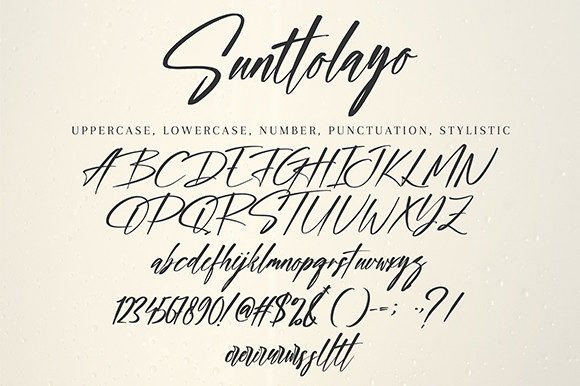 Sunttolayo
UPPERCASE, LOWERCASE, NUMBER, PUNCTUATION, STYLISTIC
ABCDEFGHIJKLMN
OPQRSTUVWXYZ
abcdefhijklmnopqrstuvwxyz
1234567890!@#$%&*()-=; .,?/